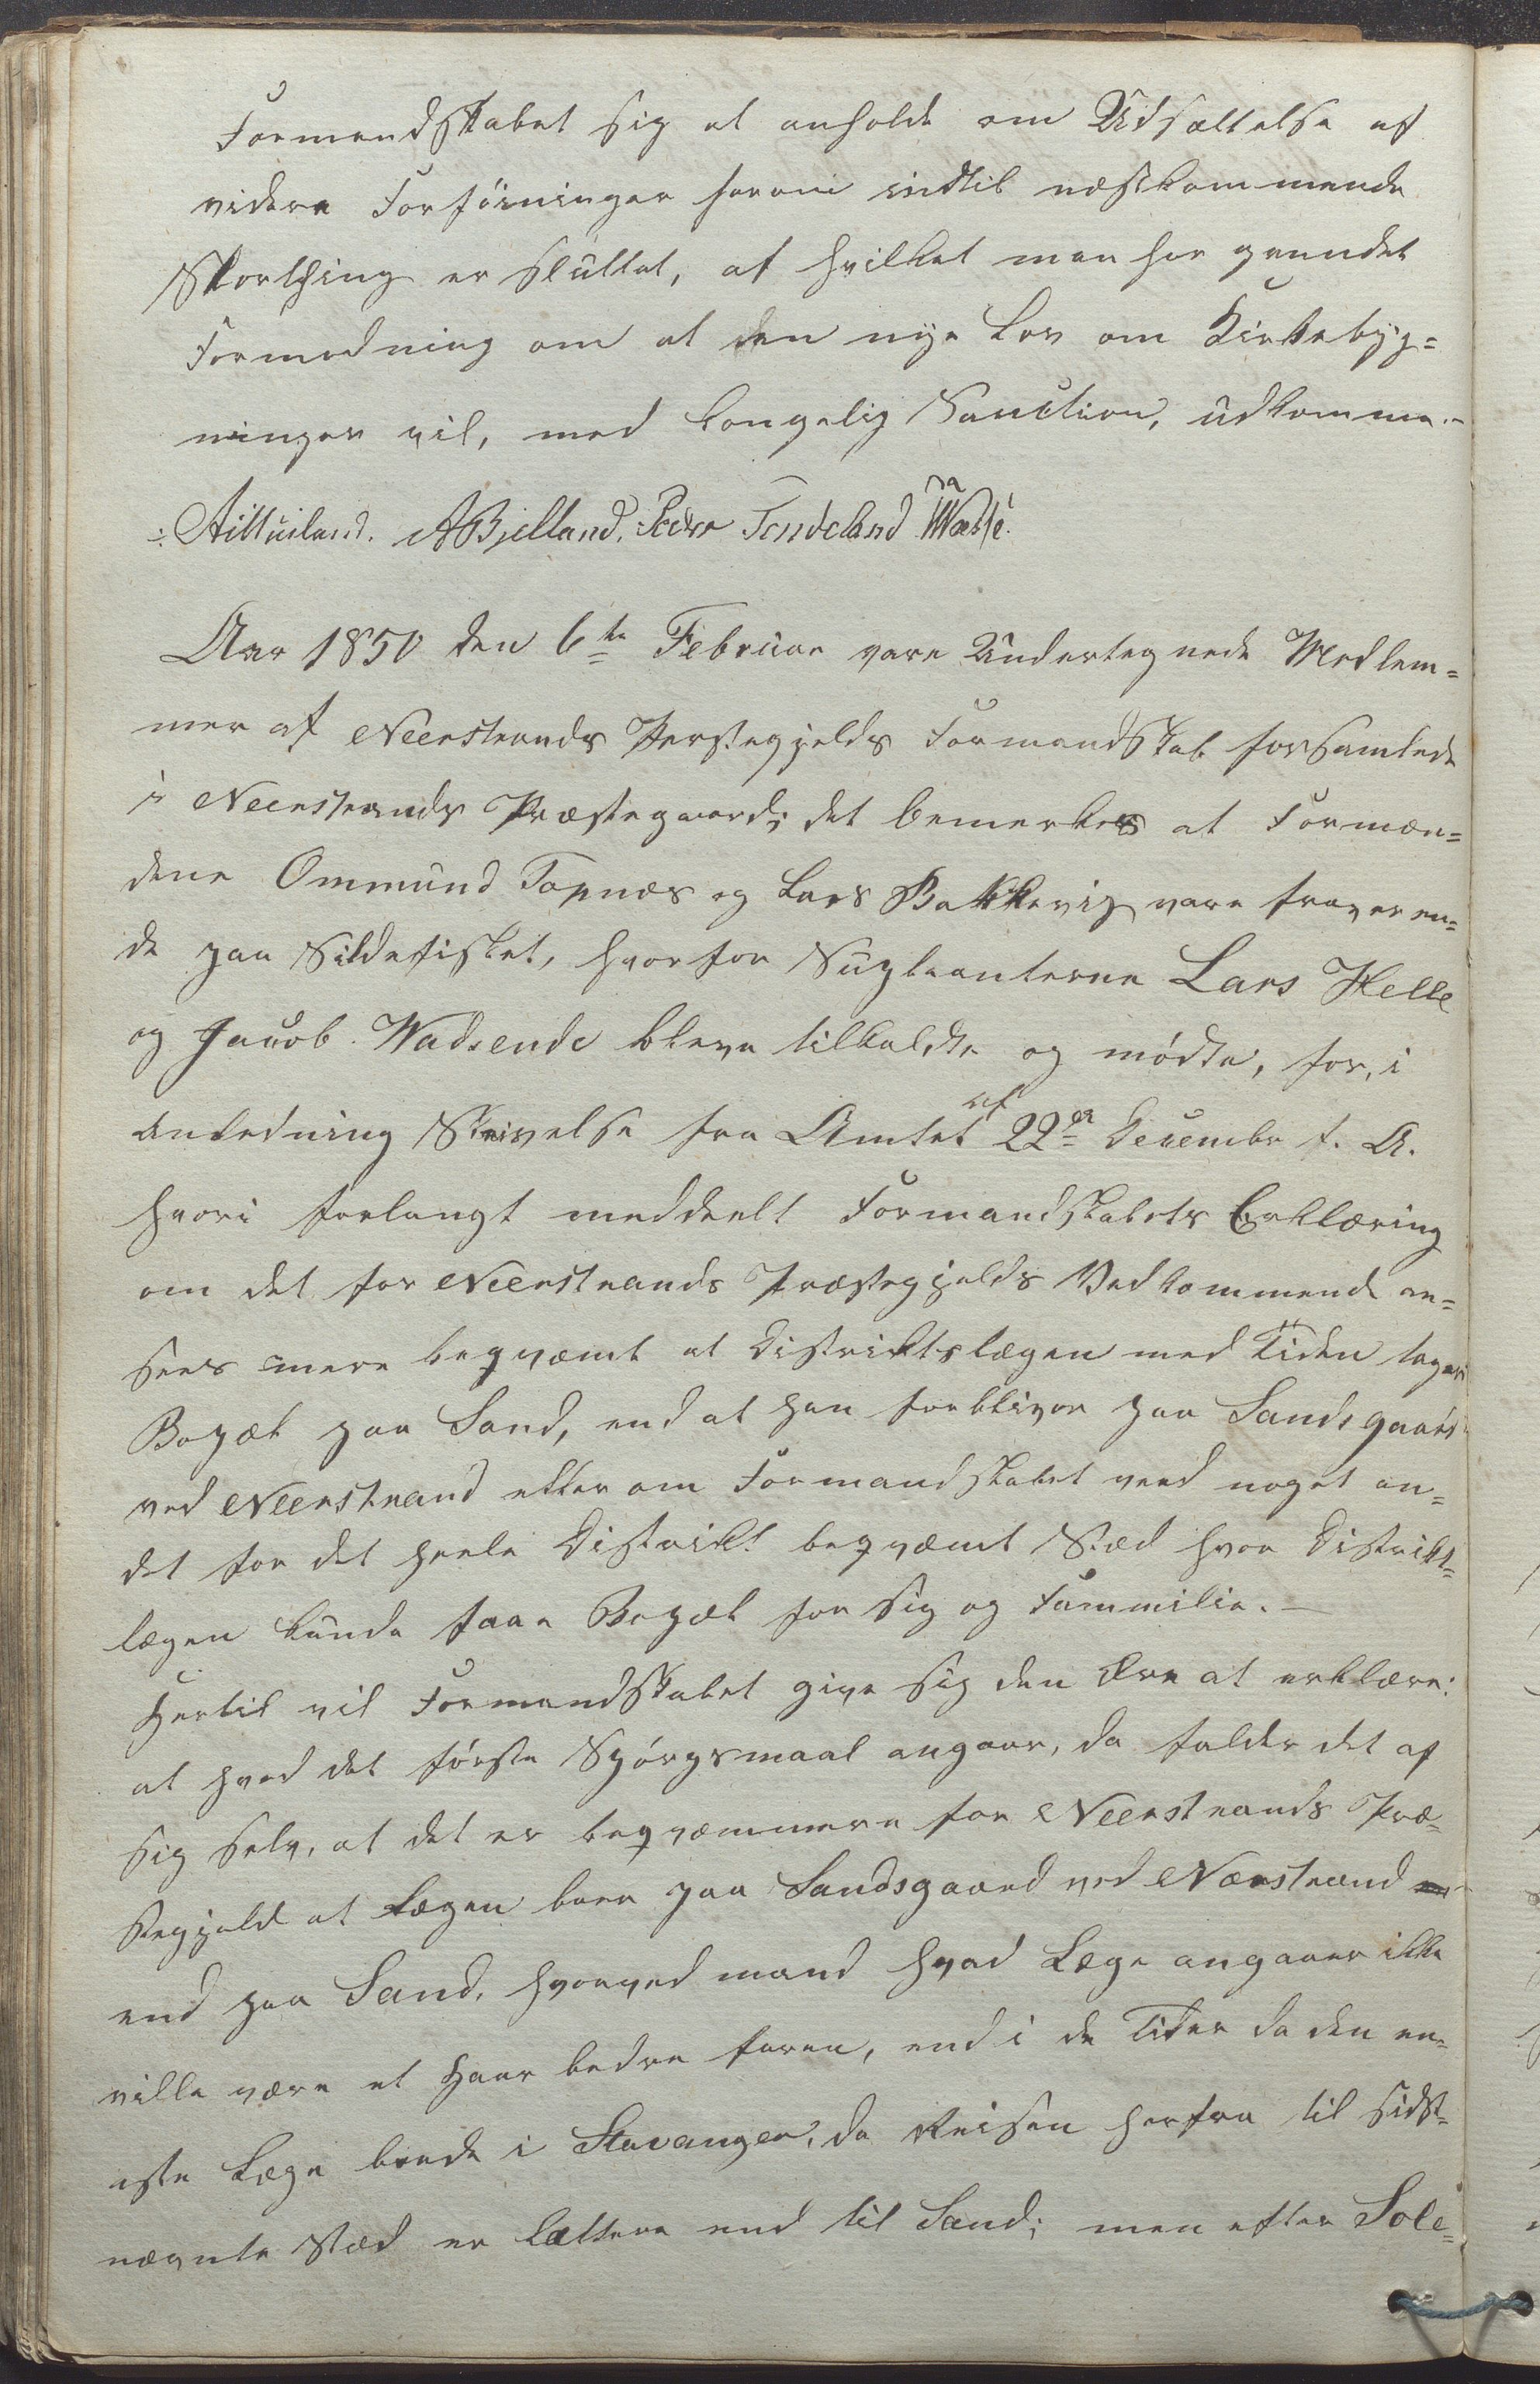 Formandskabet sig at anholde om Udsættelse af
videre Forføininger herom indtil næstkommende
Storthing er sluttet, af hvilket man har grundet
Formodning om at den nye Lov om Kirkebyg=
ninger vil, med kongelig Sanction, udkomme.-
A Bjelland. Peder Tendeland
Aar 1850 den 6te Februar vare Undertegnede Medlem=
mer af Neerstrands Præstegjelds Formandskab forsamlede
i Neerstrands Præstegaard; det bemerkes at Formæn=
dene Ommund Tapnæs og Lars Bakkevig vare fraværen=
de paa Sildefisket, hvorfor Suppleanterne Lars Helle
og Jacob Wadsende bleve tilkaldte og mødte, for, i
Anledning Skrivelse fra Amtet af 22de Decembr f. A.
hvori forlangt meddeelt Formandskabets Erklæring
om det for Neerstrands Præstegjelds Vedkommende an=
sees mere beqvæmt at Districtslægen med Tiden tager
Bopæl paa Sand, end at han forbliver paa Sandsgaard
ved Neerstrand eller om Formandskabet veed noget an=
det for det heele District beqvæmt Stæd hvor District=
lægen kunde faae Bopæl for sig og Fammilie.-
Hertil vil Formandskabet give sig den Ære at erklære:
at hvad det første Spørgsmaal angaar, da falder det af
sig selv, at det er beqvæmmere for Neerstrands Præ=
stegjeld at Lægen boer paa Sandsgaard ved Nærstrand
end paa Sand, hvorved mand hvad Læge angaaer ikke
ville være et Haar bedre faren, end i de Tider da den en=
este Læge boede i Stavanger, da Reisen herfra til sidst=
nævnte Stæd er lættere end til Sand; men efter Sole=